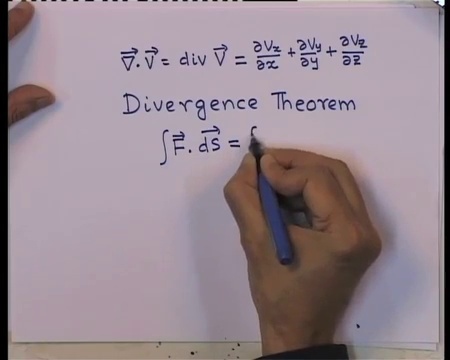 ∇⃗.V⃗ = div V⃗ = ∂Vx/∂x + ∂Vy/∂y + ∂Vz/∂z
Divergence Theorem
∫F⃗.dS⃗ = ∫